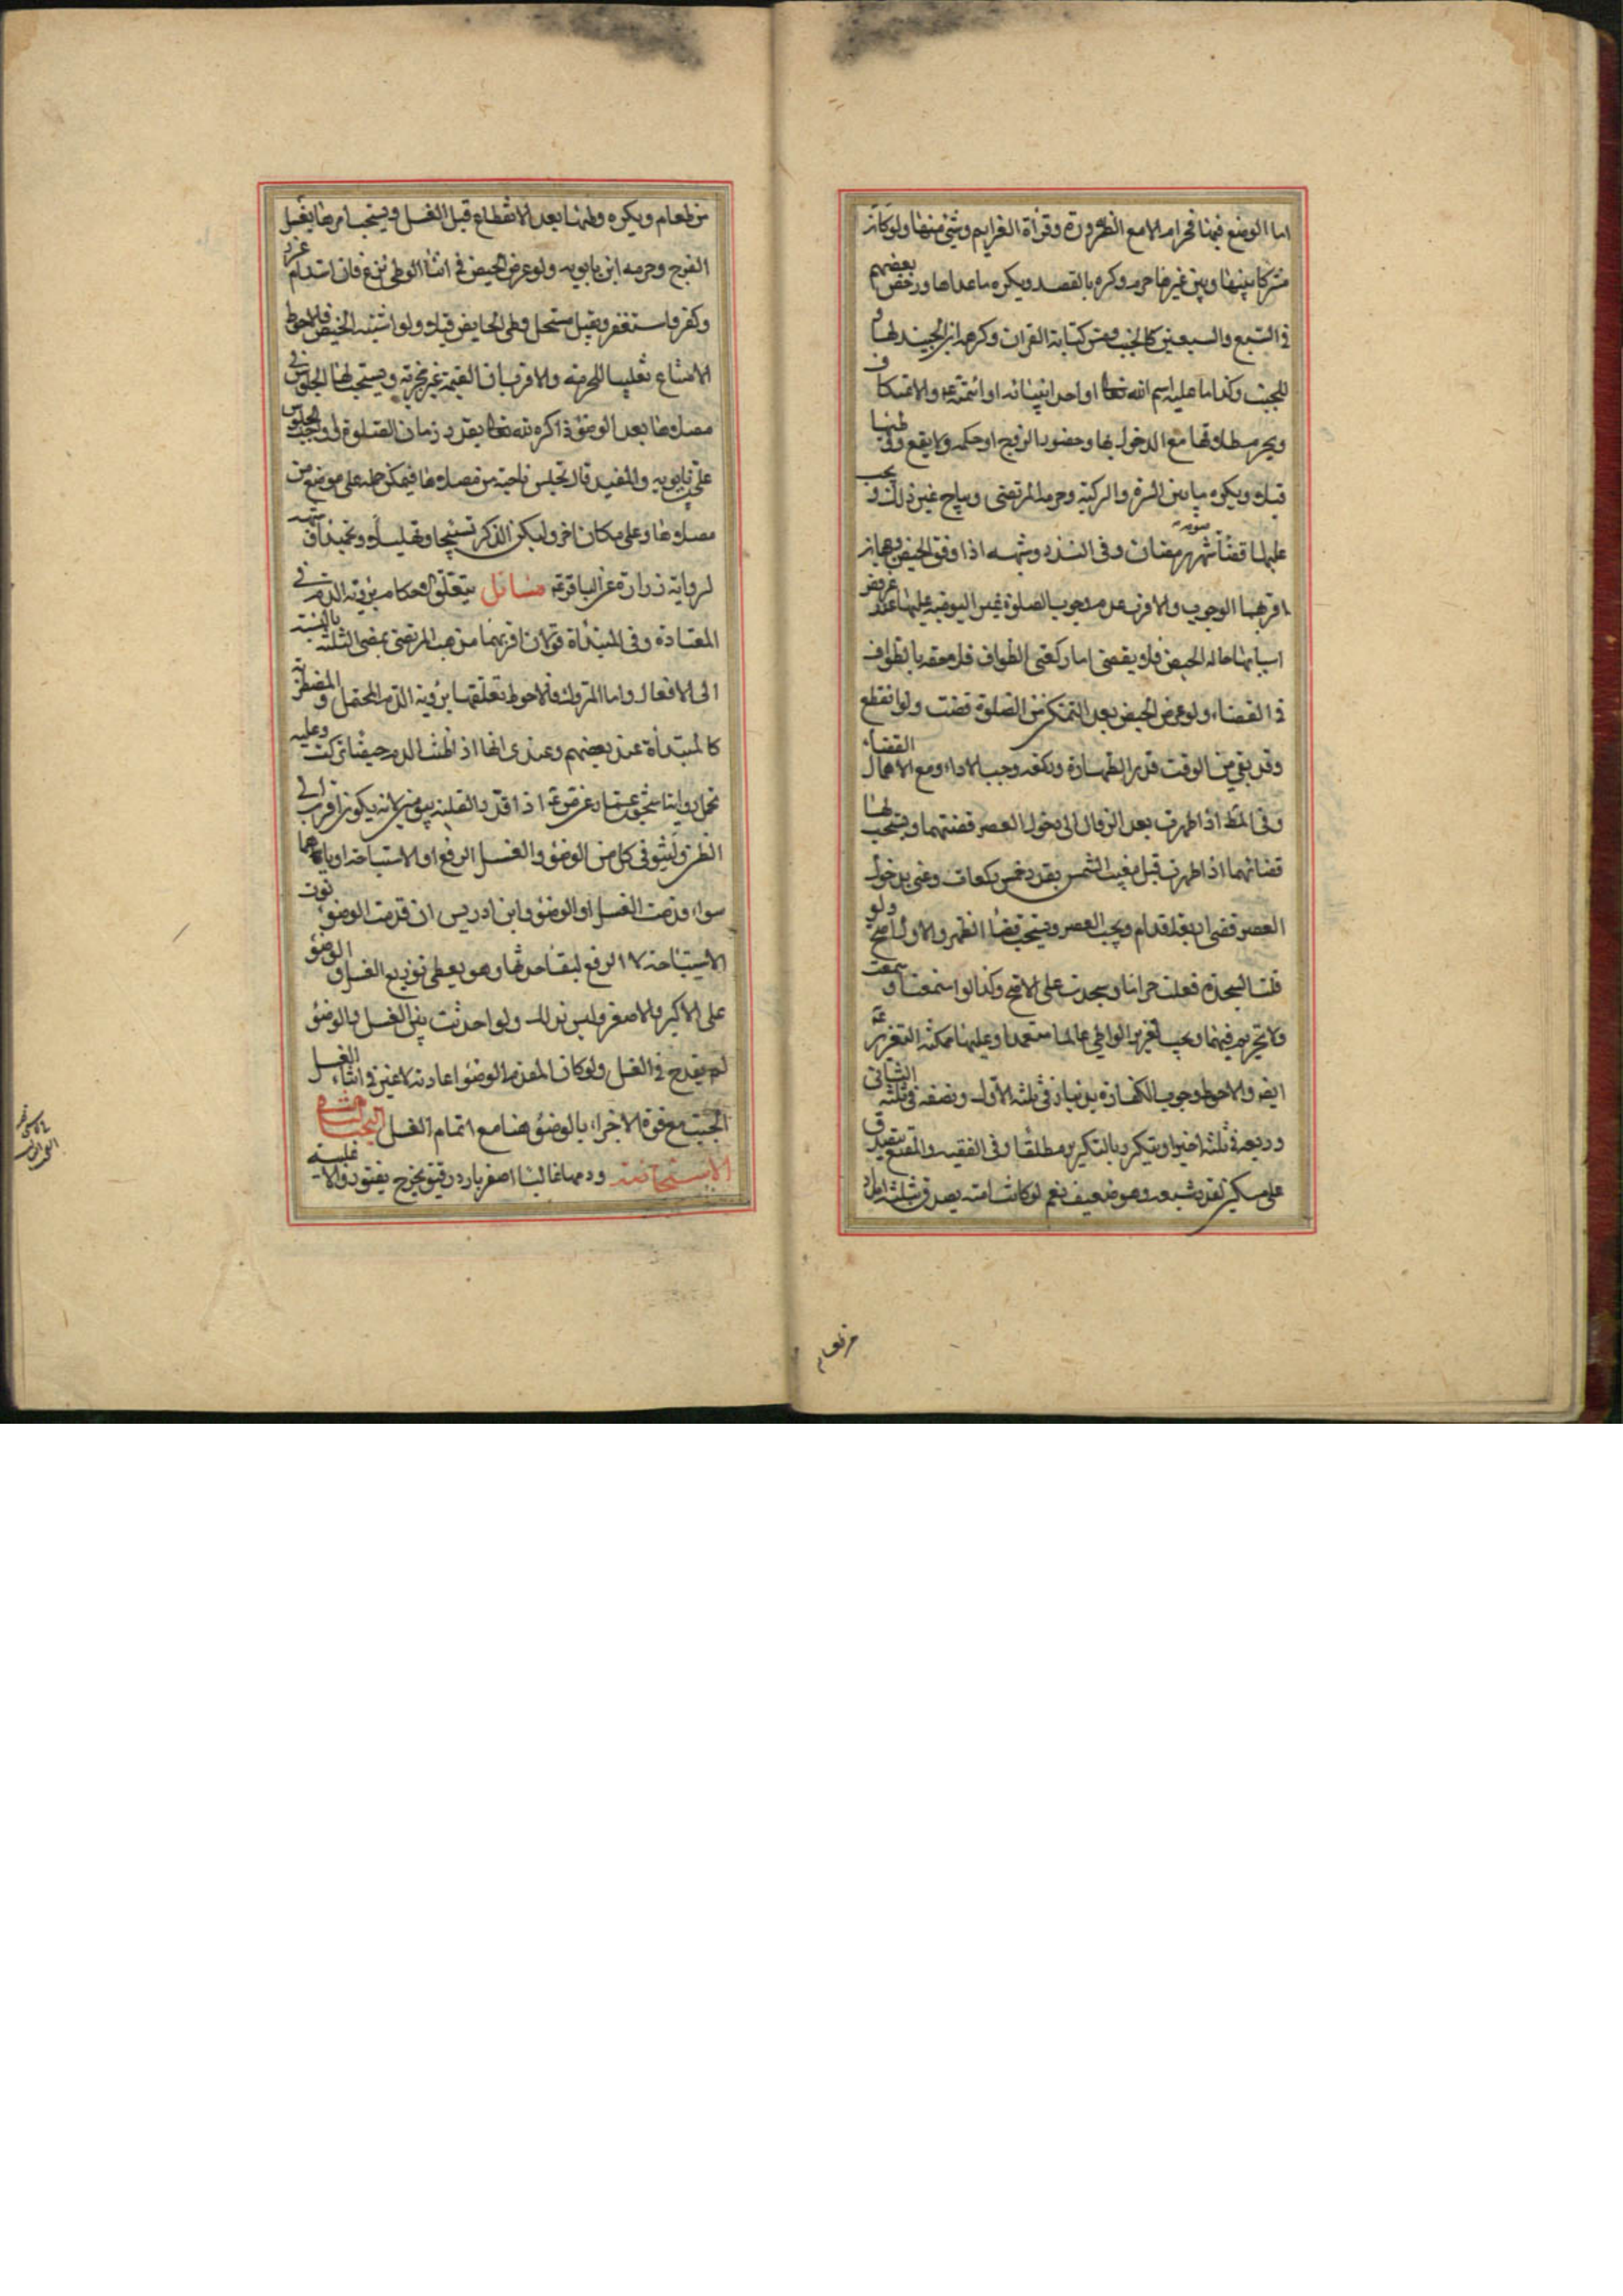 اما الوضع فيها فحرام الا مع الضرورة وقراءة العزايم وشئ منها ولو كان
مشتركا بينها وبين غيرها حرم وكره بالقصد ويكره ما عداها ورخص بعضهم
في السبع والسبعين كالجنب ومس كتابة القران وكرهه ابن الجنيد لها و
للجنب وكذا ما عليه اسم الله تعالى او احد انبيائه او ائمته ع والاعتكاف
ويحرم طلاقها مع الدخول بها وحضور الزوج او حكمه ولا يقع وطئها
قبلا ويكره ما بين السرة والركبة وحرمه المرتضى ويباح غير ذلك ويجب
عليها قضاء شهر رمضان وفي النذر وشبهه اذا وفق الحيض وجهان
اقربهما الوجوب والاقرب عدم وجوب الصلوة غير اليومية عليها عند عروض
اسبابها حالة الحيض فلا يقضى اما ركعتي الطواف فملحقه بالطواف
في القضاء ولو عرض الحيض بعد التمكن من الصلوة قضت ولو انقطع
وقد بقي من الوقت قدر الطهارة وركعة وجب الاداء ومع الاهمال القضاء
وفي اذا طهرت بعد الزوال الى دخول العصر قضتهما ويستحب لها
قضائهما اذا طهرت قبل مغيب الشمس بقدر خمس ركعات وعنى بدخول
العصر مضى اربعة اقدام ويجب العصر ويستحب قضاء الظهر والاول اصح ولو
تلت السجدة فعلت حراما وسجدت على الاصح وكذا لو استمعت او سمعت
ولا تحريم فيهما ويجب تعزير الواطي عالما متعمدا وعليها التعزير
ايضا والاحوط وجوب الكفارة بدينار في ثلثه الاول ونصفه في ثلثه الثاني
وربعه في ثلثه اخيرا ويتكرر بالتكرير مطلقا وفي الفقيه والمقنع يتصدق
على مسكين بقدر شبعه وهو ضعيف نعم لو كانت امته يصدق بثلثة امداد
من طعام
من طعام ويكره وطئها بعد الانقطاع قبل الغسل ويستحب امرها بغسل
الفرج وحرمه ابن بابويه ولو عرض الحيض في اثناء الوطي نزع فان استدام عزر
وكفر واستغفر ويقتل مستحل وطي الحايض قبلا ولو اشتبه الحيض فالاحوط
الامتناع تغليبا للحرمة والاقرب ان القيمة غير مجزية ويستحب لها الجلوس في
مصلاها بعد الوضوء ذاكرة لله تعالى بقدر زمان الصلوة واوجب الجلوس
علي بن بابويه والمفيد قال تجلس ناحية من مصلاها فيمكن حمله على موضع من
مصلاها وعلى مكان اخر وليكن الذكر تسبيحا وتهليلا وتحميدا وشبهه
لرواية زرارة عن الباقر ع مسائل يتعلق الاحكام برؤية الدم في
المعتادة وفي المبتدأة قولان اقربهما مذهب المرتضى بمضى الثلثة بالنسبة
الى الافعال واما التروك فالاحوط تعلقها برؤية الدم المحتمل والمضطربة
كالمبتدأة عند بعضهم وعندي انها اذا ظنت الدم حيضا تركت وعليه
تحمل رواية اسحق بن عمار عن الصادق ع اذا تقدم القلته بيومين لانه يكون اقرب الى
الظن ولينو في كل من الوضوء والغسل الرفع او الاستباحة او هما
سواء قدمت الغسل او الوضوء وابن ادريس ان قدمت الوضوء نوت
الاستباحة لا الرفع لبقاء حدثها وهو يعطي توزيع الغسل والوضوء
على الاكبر والاصغر وليس كذلك ولو احدثت بين الغسل والوضوء
لم يقدح في الغسل ولو كان المقدم الوضوء اعادته لا غير في اثناء الغسل
الجنب مع قوة الاجزاء بالوضوء هنا مع اتمام الغسل البحث الثاني
الاستحاضة ودمها غالبا اصفر بارد رقيق يخرج بفتور والا